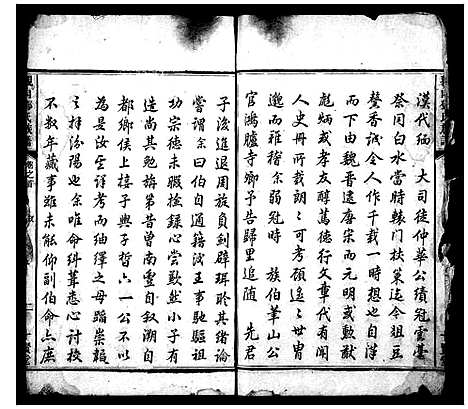 漢代緬　大司徒仲華公績冠雲臺
祭同白水當時棘門扶策迄今俎豆
馨香誠令人作千載一時之思也自漢
而下由魏晉遠唐宋而元明或以勳猷
彪炳或孝友醇篤德行文章代有聞
人史冊所載朗朗可考顧遙遙世冑
邈而難稽余弱冠時　族伯華山公
官鴻臚寺卿予告歸里追隨　先君
子後進退周旋員劍辟珥聆其緒論
嘗謂余曰伯自通籍後王事馳驅祖
功宗德未暇捡錄心嘗歉然小子有
造尚其勉旃第昔曾南豐自敘溯自
都鄉侯上接子輿子晳六一公不以
為是汝堂詳考而紬繹之毋蹈崇韜
之拜汾陽也余唯命糾葺悉心討校
不數年蕆事雖未能仰副伯命亦庶